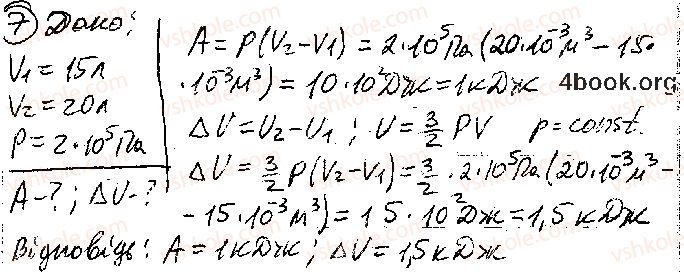 7) Дано:
V₁ = 15л
V₂ = 20л
P = 2·10⁵Па
A-? ; ΔU-?
A = P(V₂-V₁) = 2·10⁵Па(20·10⁻³м³ - 15·
·10⁻³м³) = 10·10²Дж = 1кДж
4book.org
ΔU = U₂-U₁ ; U = 3/2 PV p = const.
ΔU = 3/2 P(V₂-V₁) = 3/2 · 2·10⁵Па(20·10⁻³м³ -
- 15·10⁻³м³) = 15·10²Дж = 1,5кДж
Відповідь: A = 1кДж ; ΔU = 1,5кДж